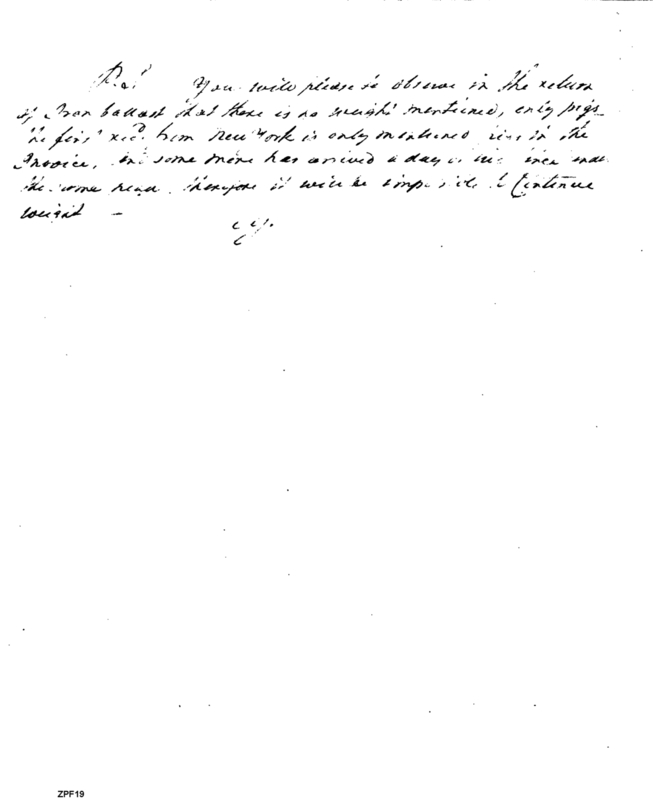 P.S. You will please to observe in the return
of Iron ballast that there is no weight mentioned, only pigs
the first recd from New York is only mentioned in the
Invoice, and some more has arrived a day or
the same therefore it will be impossible to Continue
weight –
ZPF19